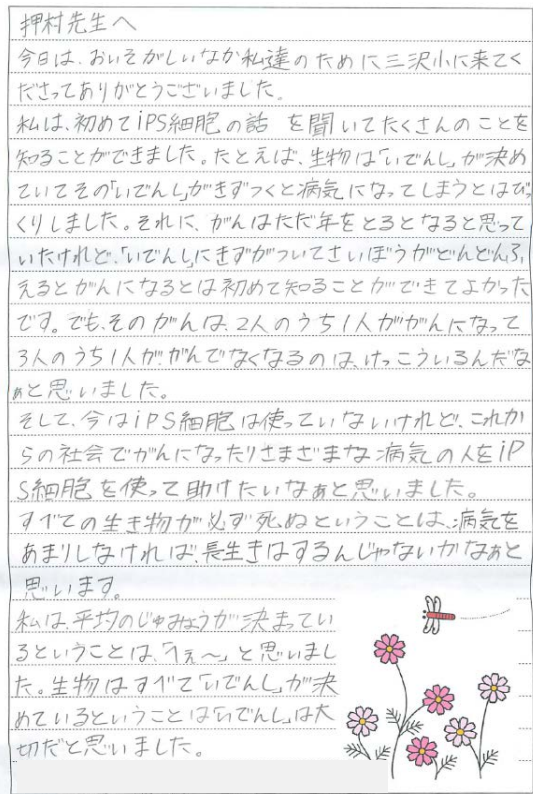 押村先生へ
今日は、おいそがしいなか私達のために三沢小に来てく
ださってありがとうございました。
私は、初めてiPS細胞の話 を聞いてたくさんのことを
知ることができました。たとえば、生物は「いでんし」が決め
ていてその「いでんし」がきずつくと病気になってしまうとはびっ
くりしました。それに、がんはただ年をとるとなると思って
いたけれど、「いでんし」にきずがついてさいぼうがどんどんふ
えるとがんになるとは初めて知ることができてよかった
です。でも、そのがんは、2人のうち1人ががんになって
3人のうち1人が、がんでなくなるのは、けっこういるんだな
ぁと思いました。
そして、今はiPS細胞は使っていないけれど、これか
らの社会でがんになったりさまざまな病気の人をiP
S細胞を使って助けたいなぁと思いました。
すべての生き物が必ず死ぬということは、病気を
あまりしなければ、長生きはするんじゃないかなぁと
思います。
私は、平均のじゅみょうが決まってい
るということは、「へぇ〜」と思いまし
た。生物はすべて「いでんし」が決
めているということは「いでんし」は大
切だと思いました。